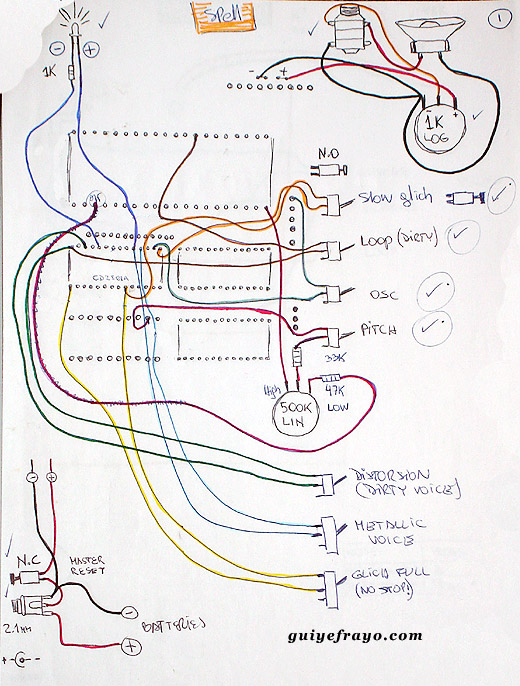 Spell
1
- +
1K
- +
- +
1K
LOG
N.O
Slow glich
LOOP (DIRTY)
CD2801A
OSC
PITCH
33K
High
500K
LIN
47K
LOW
DISTORSION
(DIRTY VOICE)
- +
METALLIC
VOICE
N.C
MASTER
RESET
GLICH FULL
(NO STOP!)
2.1mm
-
BATTERIES
+
+ -
guiyefrayo.com